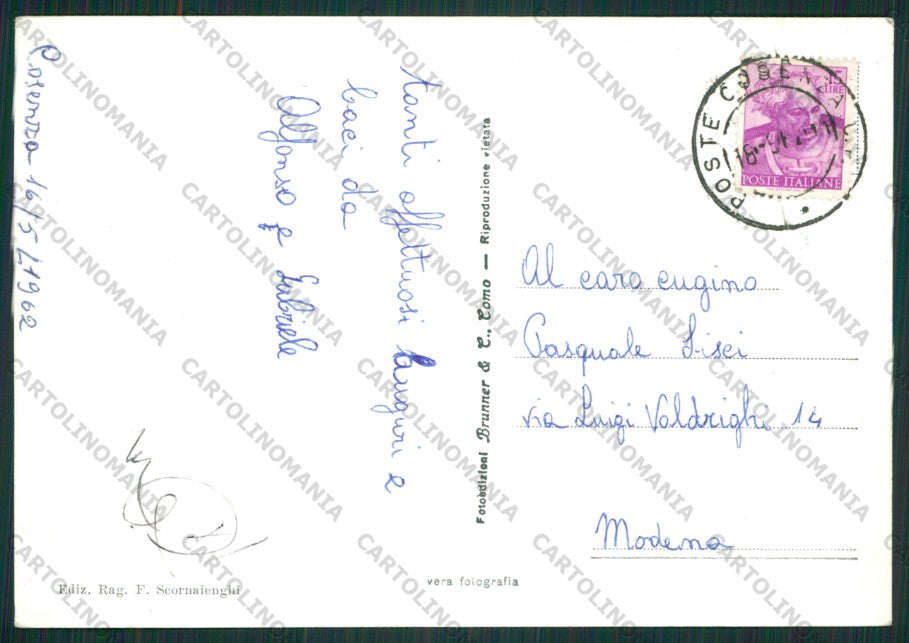 Cosenza 16/5/1962
tanti affettuosi auguri e
baci da
Alfonso e Gabriele
Fotoedizioni Brunner & C., Como — Riproduzione vietata
15
LIRE
POSTE ITALIANE
POSTE COSENZA
Al caro cugino
Pasquale Lisci
via Luigi Valdrighi 14
Modena
Ediz. Rag. F. Scornaienghi
vera fotografia
CARTOLINOMANIA